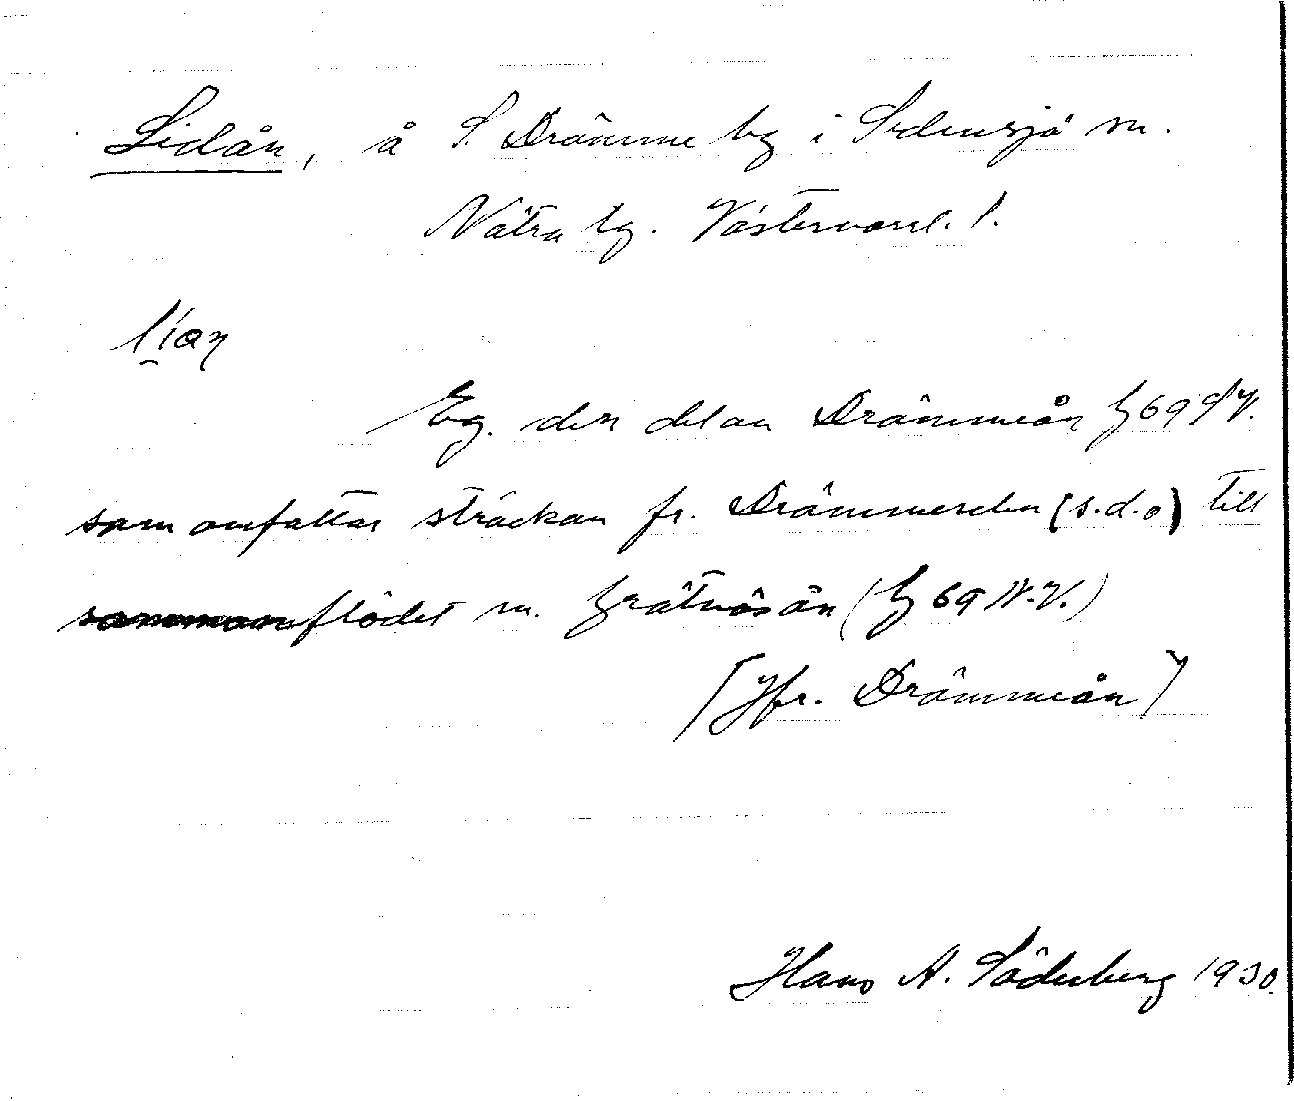 Lidån, å S. Drömme by i Sidensjö sn.
Nätra tg. Västernorrl. l.
lían
Eg. den del av Drömmeån
som omfattar sträckan fr. Drömmeselen (s.d.o) till
sammanflödet m. Grätnäsån (G 69 N.V.)
[Jfr. Drömmeån]
Hans A. Söderberg 1930.